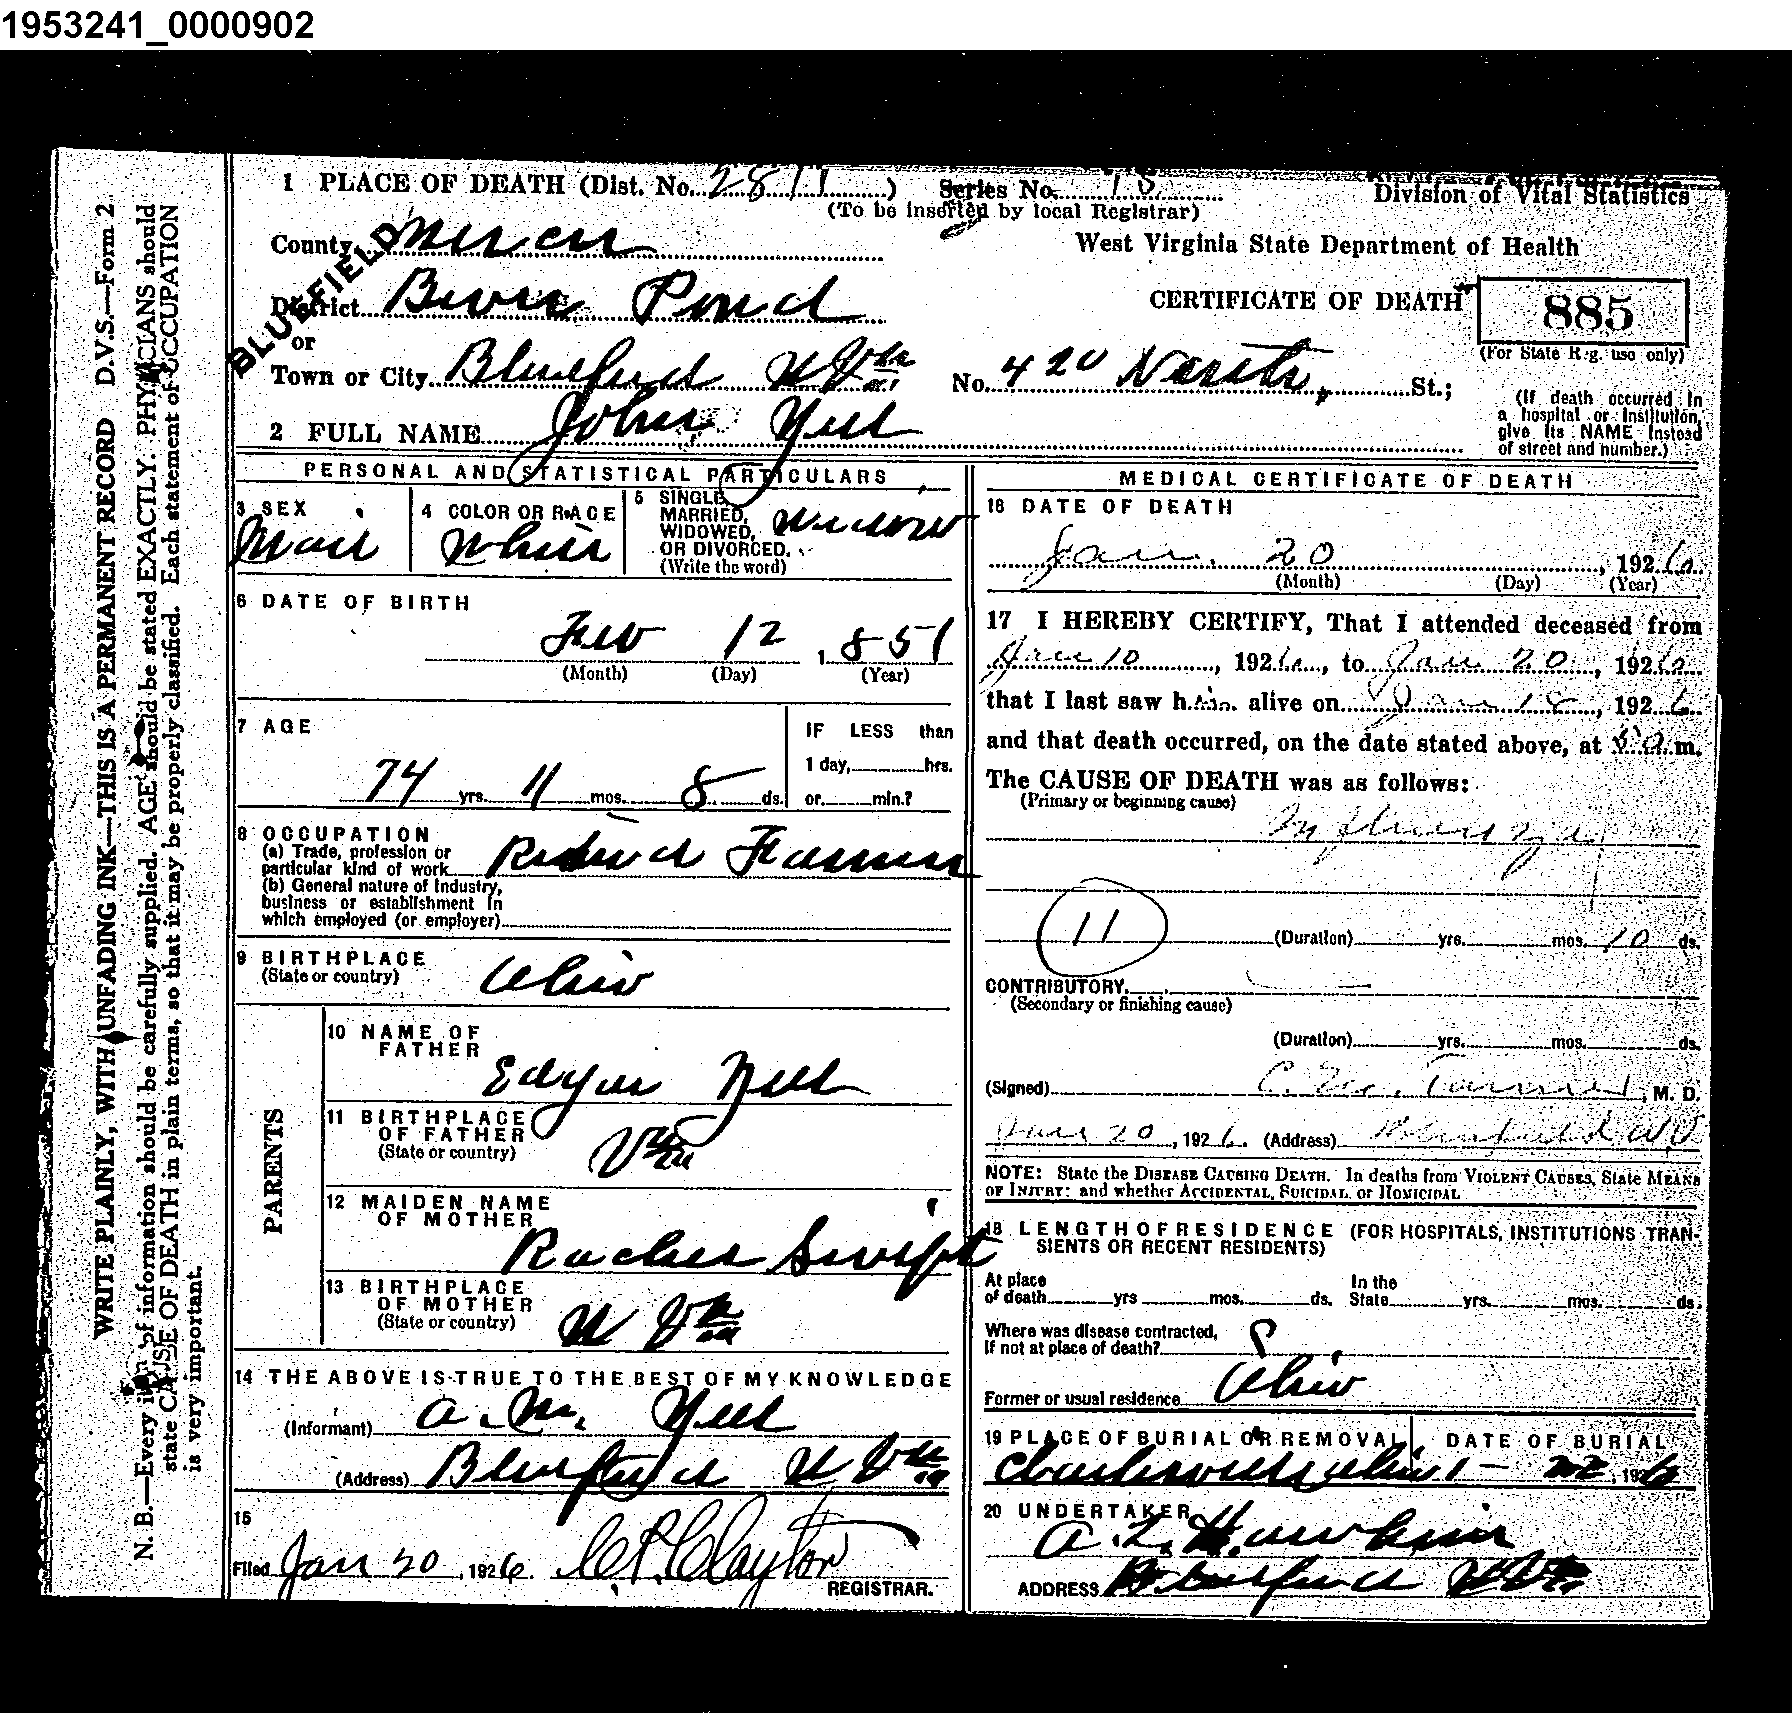 1953241_0000902
1 PLACE OF DEATH (Dist. No. 2811) Series No. 18
(To be inserted by local Registrar)
Division of Vital Statistics
County Mercer
BLUEFIELD
West Virginia State Department of Health
District Bever Pond
CERTIFICATE OF DEATH
885
(For State Reg. use only)
or
Town or City Bluefield W Va No. 420 North St.;
(If death occurred in
a hospital or institution,
give its NAME instead
of street and number.)
2 FULL NAME John
PERSONAL AND STATISTICAL PARTICULARS
3 SEX
Mail
4 COLOR OR RACE
White
5 SINGLE,
MARRIED,
WIDOWED,
OR DIVORCED.
(Write the word)
Widow
6 DATE OF BIRTH
Feb 12, 1851
(Month) (Day) (Year)
7 AGE
74 yrs. 11 mos. 8 ds.
IF LESS than
1 day, hrs.
or min.?
8 OCCUPATION
(a) Trade, profession or
particular kind of work Retired Farmer
(b) General nature of Industry,
business or establishment in
which employed (or employer)
9 BIRTHPLACE
(State or country)
Ohio
PARENTS
10 NAME OF
FATHER
Edgar
11 BIRTHPLACE
OF FATHER
(State or country)
Va
12 MAIDEN NAME
OF MOTHER
Rachel Swift
13 BIRTHPLACE
OF MOTHER
(State or country)
W Va
14 THE ABOVE IS TRUE TO THE BEST OF MY KNOWLEDGE
(Informant) A. M.
(Address) Bluefield W Va
15
Filed Jan 20, 1926. C.P. Clayton
REGISTRAR.
MEDICAL CERTIFICATE OF DEATH
16 DATE OF DEATH
Jan. 20, 1926
(Month) (Day) (Year)
17 I HEREBY CERTIFY, That I attended deceased from
Jan 10, 1926, to Jan 20, 1926
that I last saw him alive on Jan 18, 1926
and that death occurred, on the date stated above, at m.
The CAUSE OF DEATH was as follows:
(Primary or beginning cause)
Influenza
11
(Duration) yrs. mos. 10 ds.
CONTRIBUTORY
(Secondary or finishing cause)
(Duration) yrs. mos. ds.
(Signed) M. D.
Jan 20, 1926. (Address) Bluefield W V
NOTE: State the DISEASE CAUSING DEATH. In deaths from VIOLENT CAUSES, State MEANS
OF INJURY: and whether ACCIDENTAL, SUICIDAL, or HOMICIDAL
18 LENGTH OF RESIDENCE (FOR HOSPITALS, INSTITUTIONS TRAN-
SIENTS OR RECENT RESIDENTS)
At place
of death yrs mos. ds.
In the
State yrs. mos. ds.
Where was disease contracted,
If not at place of death?
Former or usual residence Ohio
19 PLACE OF BURIAL OR REMOVAL DATE OF BURIAL
Ohio 1 - 22 1926
20 UNDERTAKER
A. L.
ADDRESS Bluefield W Va
WRITE PLAINLY, WITH UNFADING INK—THIS IS A PERMANENT RECORD D.V.S.—Form 2
N. B.—Every item of information should be carefully supplied. AGE should be stated EXACTLY. PHYSICIANS should
state CAUSE OF DEATH in plain terms, so that it may be properly classified. Each statement of OCCUPATION
is very important.